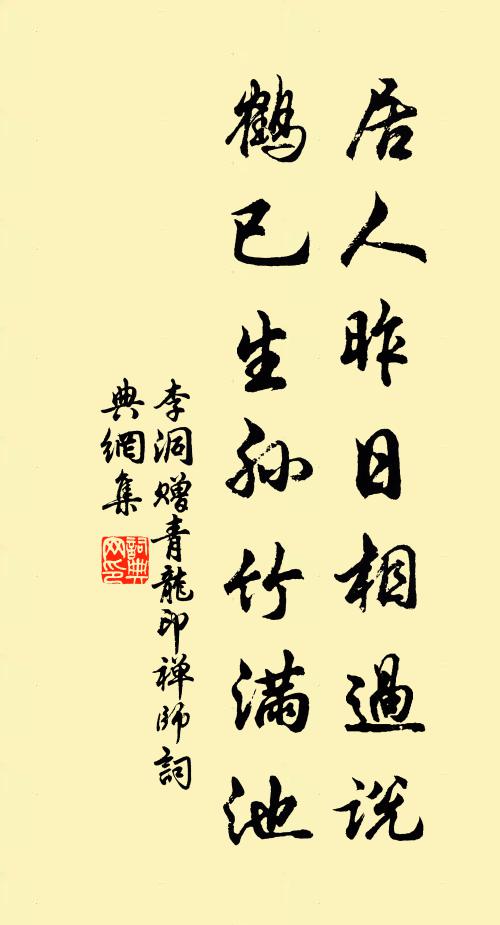 居人昨日相過説
鶴已生孙竹滿池
李洞赠青龍印禅師詞
典網集
詞典
网印